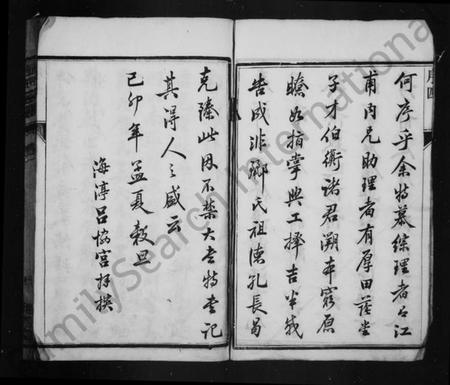 何序乎余特慕綜理者之江
甫內兄助理者有厚田蓮堂
子才伯衡諸君溯本窮原
瞭如指掌興工擇吉半載
告成非鄒氏祖德孔長曷
克臻此因不禁大書特書記
其得人之盛云
己卯年孟夏穀旦
海渟呂協宮拜撰
FamilySearch International